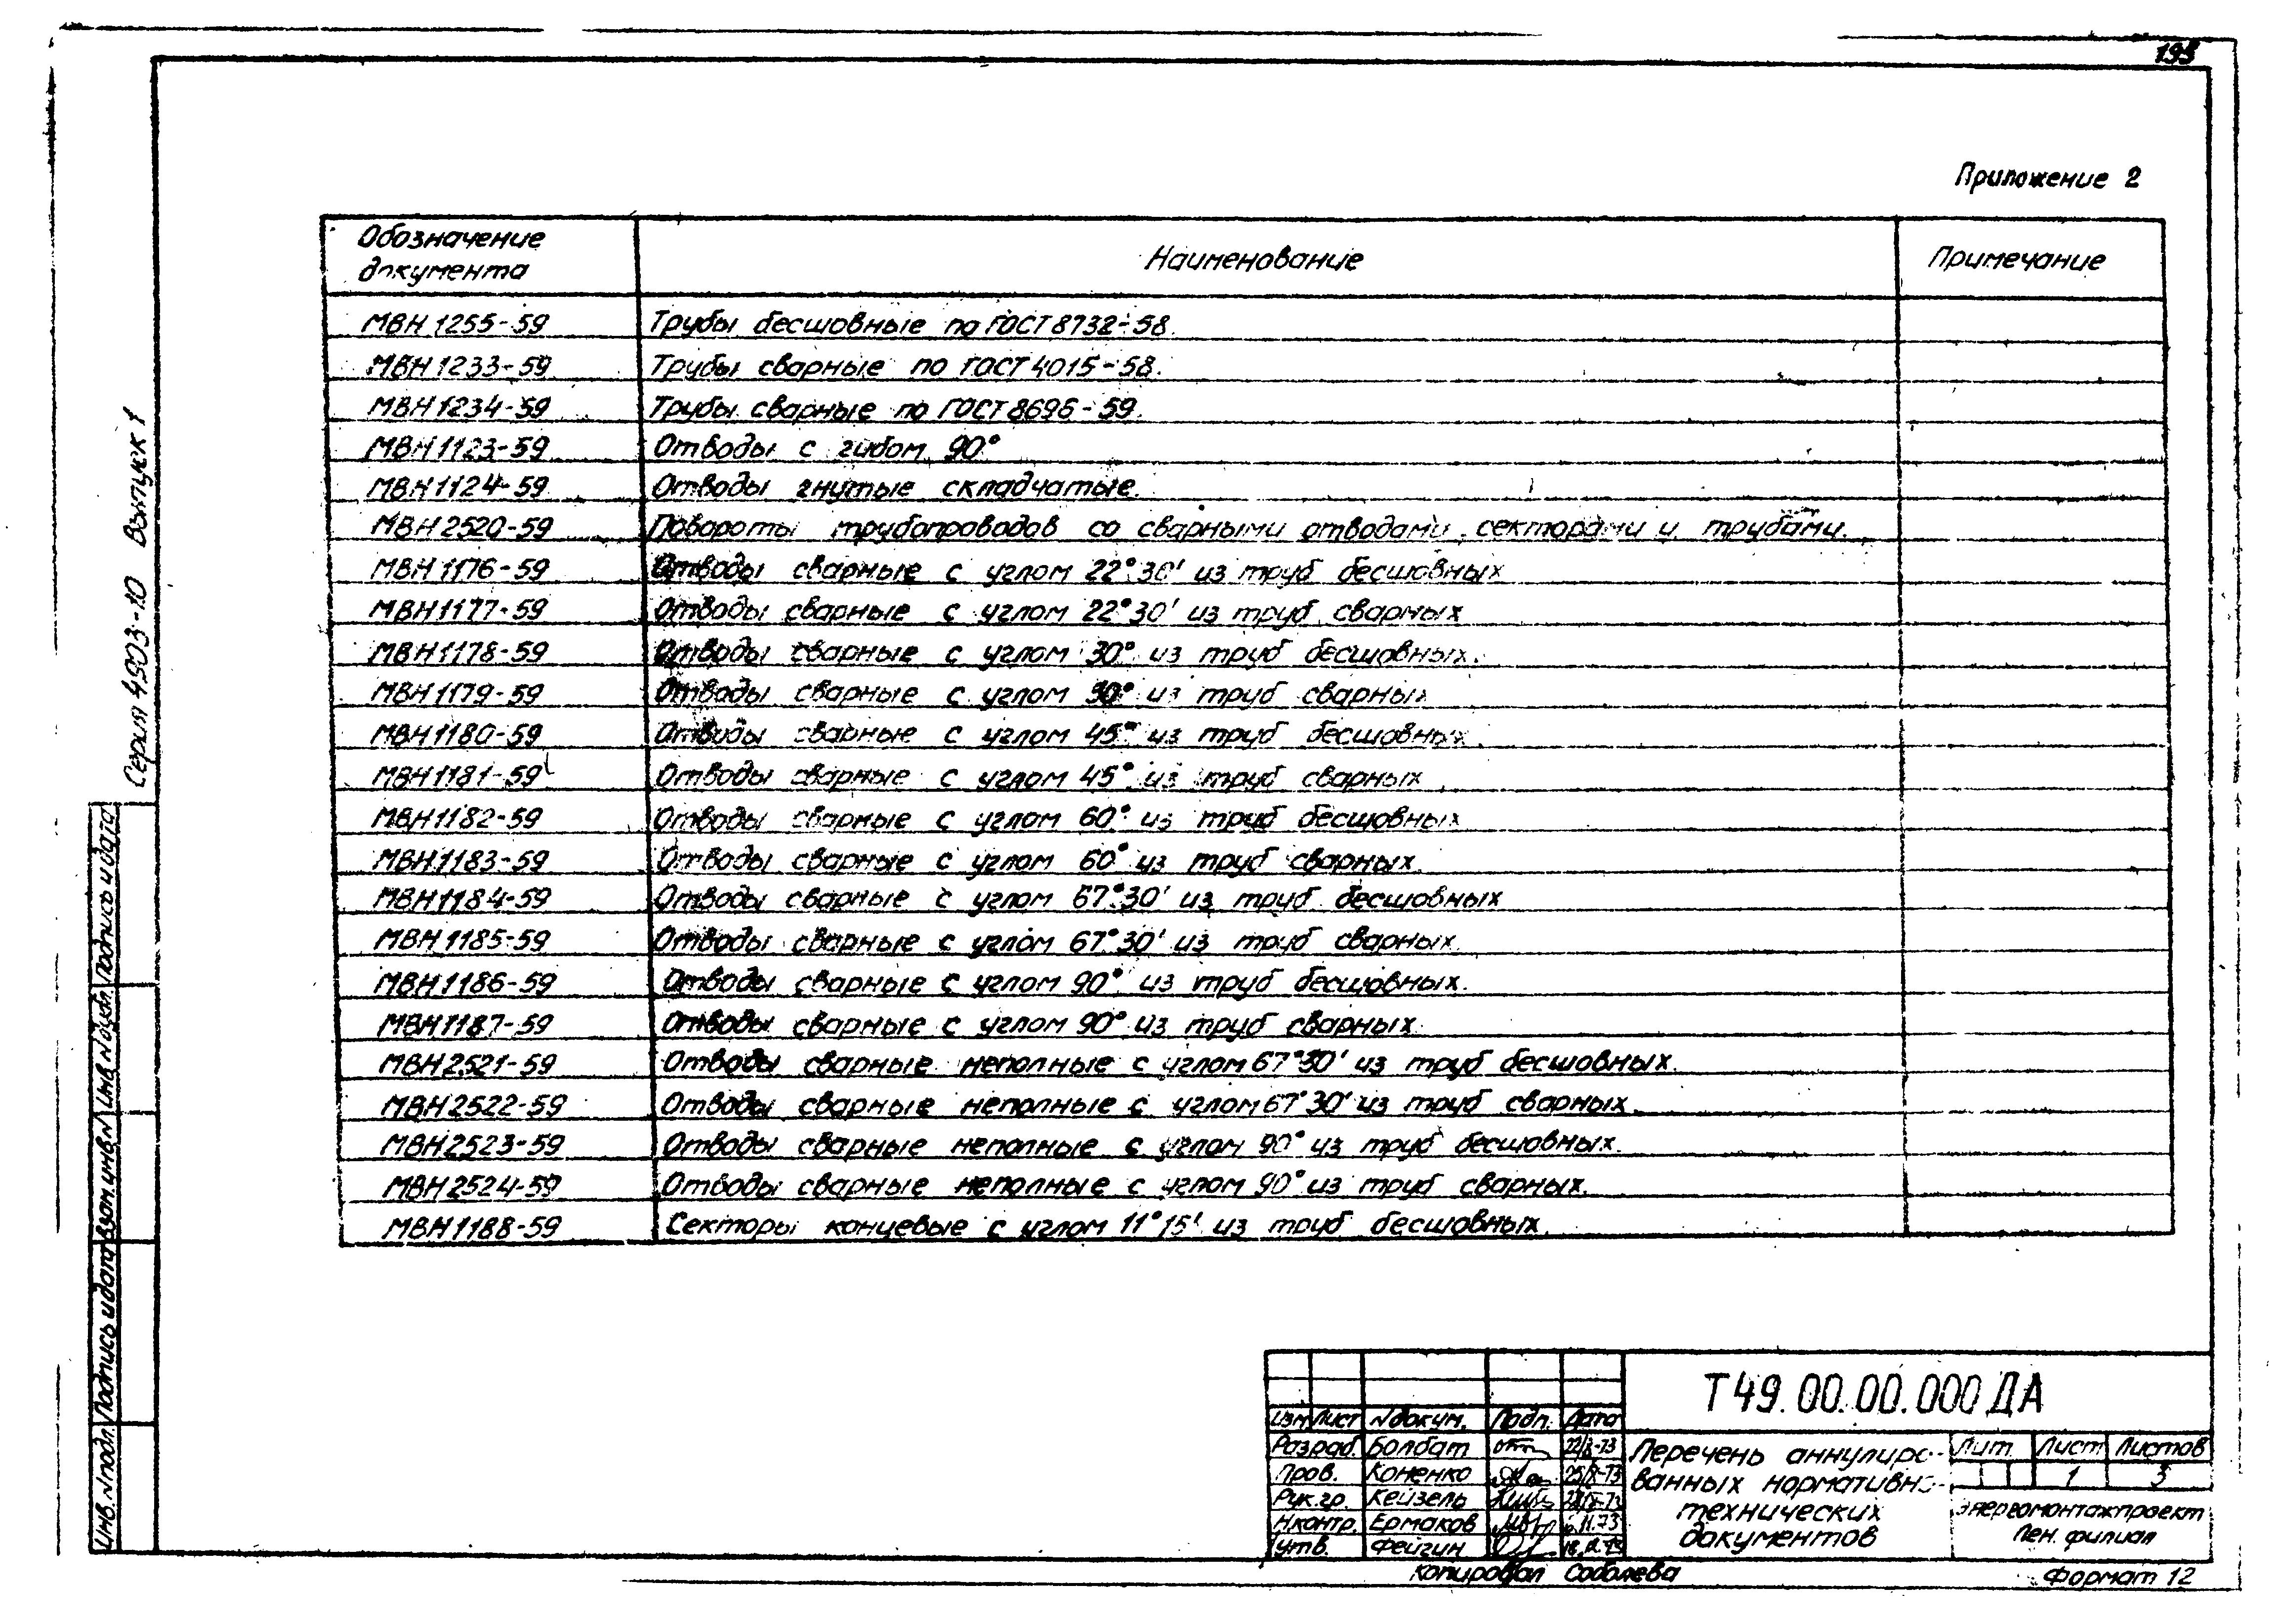 193
Приложение 2
Обозначение документа Наименование Примечание
МВН 1255-59 Трубы бесшовные по ГОСТ 8732-58.
МВН 1233-59 Трубы сварные по ГОСТ 4015-58.
МВН 1234-59 Трубы сварные по ГОСТ 8696-59.
МВН 1123-59 Отводы с гибом 90°
МВН 1124-59 Отводы гнутые складчатые.
МВН 2520-59 Повороты трубопроводов со сварными отводами, секторами и трубами.
МВН 1176-59 Отводы сварные с углом 22°30' из труб бесшовных
МВН 1177-59 Отводы сварные с углом 22°30' из труб сварных
МВН 1178-59 Отводы сварные с углом 30° из труб бесшовных.
МВН 1179-59 Отводы сварные с углом 30° из труб сварных
МВН 1180-59 Отводы сварные с углом 45° из труб бесшовных.
МВН 1181-59 Отводы сварные с углом 45° из труб сварных
МВН 1182-59 Отводы сварные с углом 60° из труб бесшовных
МВН 1183-59 Отводы сварные с углом 60° из труб сварных.
МВН 1184-59 Отводы сварные с углом 67°30' из труб бесшовных
МВН 1185-59 Отводы сварные с углом 67°30' из труб сварных.
МВН 1186-59 Отводы сварные с углом 90° из труб бесшовных.
МВН 1187-59 Отводы сварные с углом 90° из труб сварных.
МВН 2521-59 Отводы сварные неполные с углом 67°30' из труб бесшовных.
МВН 2522-59 Отводы сварные неполные с углом 67°30' из труб сварных.
МВН 2523-59 Отводы сварные неполные с углом 90° из труб бесшовных.
МВН 2524-59 Отводы сварные неполные с углом 90° из труб сварных.
МВН 1188-59 Секторы концевые с углом 11°15' из труб бесшовных.
Серия 4.903-10 Выпуск 1
Инв. N подл. Подпись и дата Взам. инв. N Инв. N дубл. Подпись и дата
Т49.00.00.000 ДА
Изм Лист N докум. Подп. Дата
Разраб. Болбат
Пров. Коненко
Рук. гр. Кейзель
Н.контр. Ермаков
Утв. Фейгин
Перечень аннулиро-
ванных нормативно-
технических
документов
Лит. Лист Листов
1 3
Энергомонтажпроект
Лен. филиал
Копировал Соболева
Формат 12